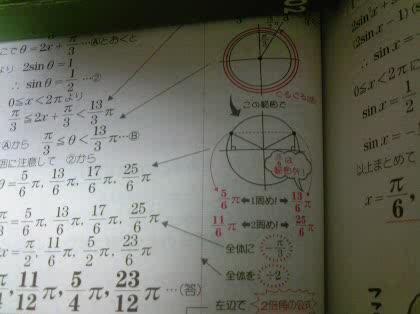 こで θ=2x+π/3 …Ⓐとおくと
より 2sinθ=1
∴ sinθ=1/2 …②
0≦x<2πより
π/3≦2x+π/3<13/3π
Ⓐから π/3≦θ<13/3π…Ⓑ
囲に注意して ②から
θ=5/6π, 13/6π, 17/6π, 25/6π
π/3=5/6π, 13/6π, 17/6π, 25/6π
x=π/2, 11/6π, 5/2π, 23/6π
π, 11/12π, 5/4π, 23/12π …(答)
ぐるぐる
この範囲で
は
範囲外!
5/6π 1周め! 13/6π
11/6π 2周め! 25/6π
全体に -π/3
全体を ÷2
左辺で 2倍角の公式
2sin²x+
(2sinx-1)(s
0≦x<2πに
sinx=1/2
sinx=-
以上まとめて
x=π/6,